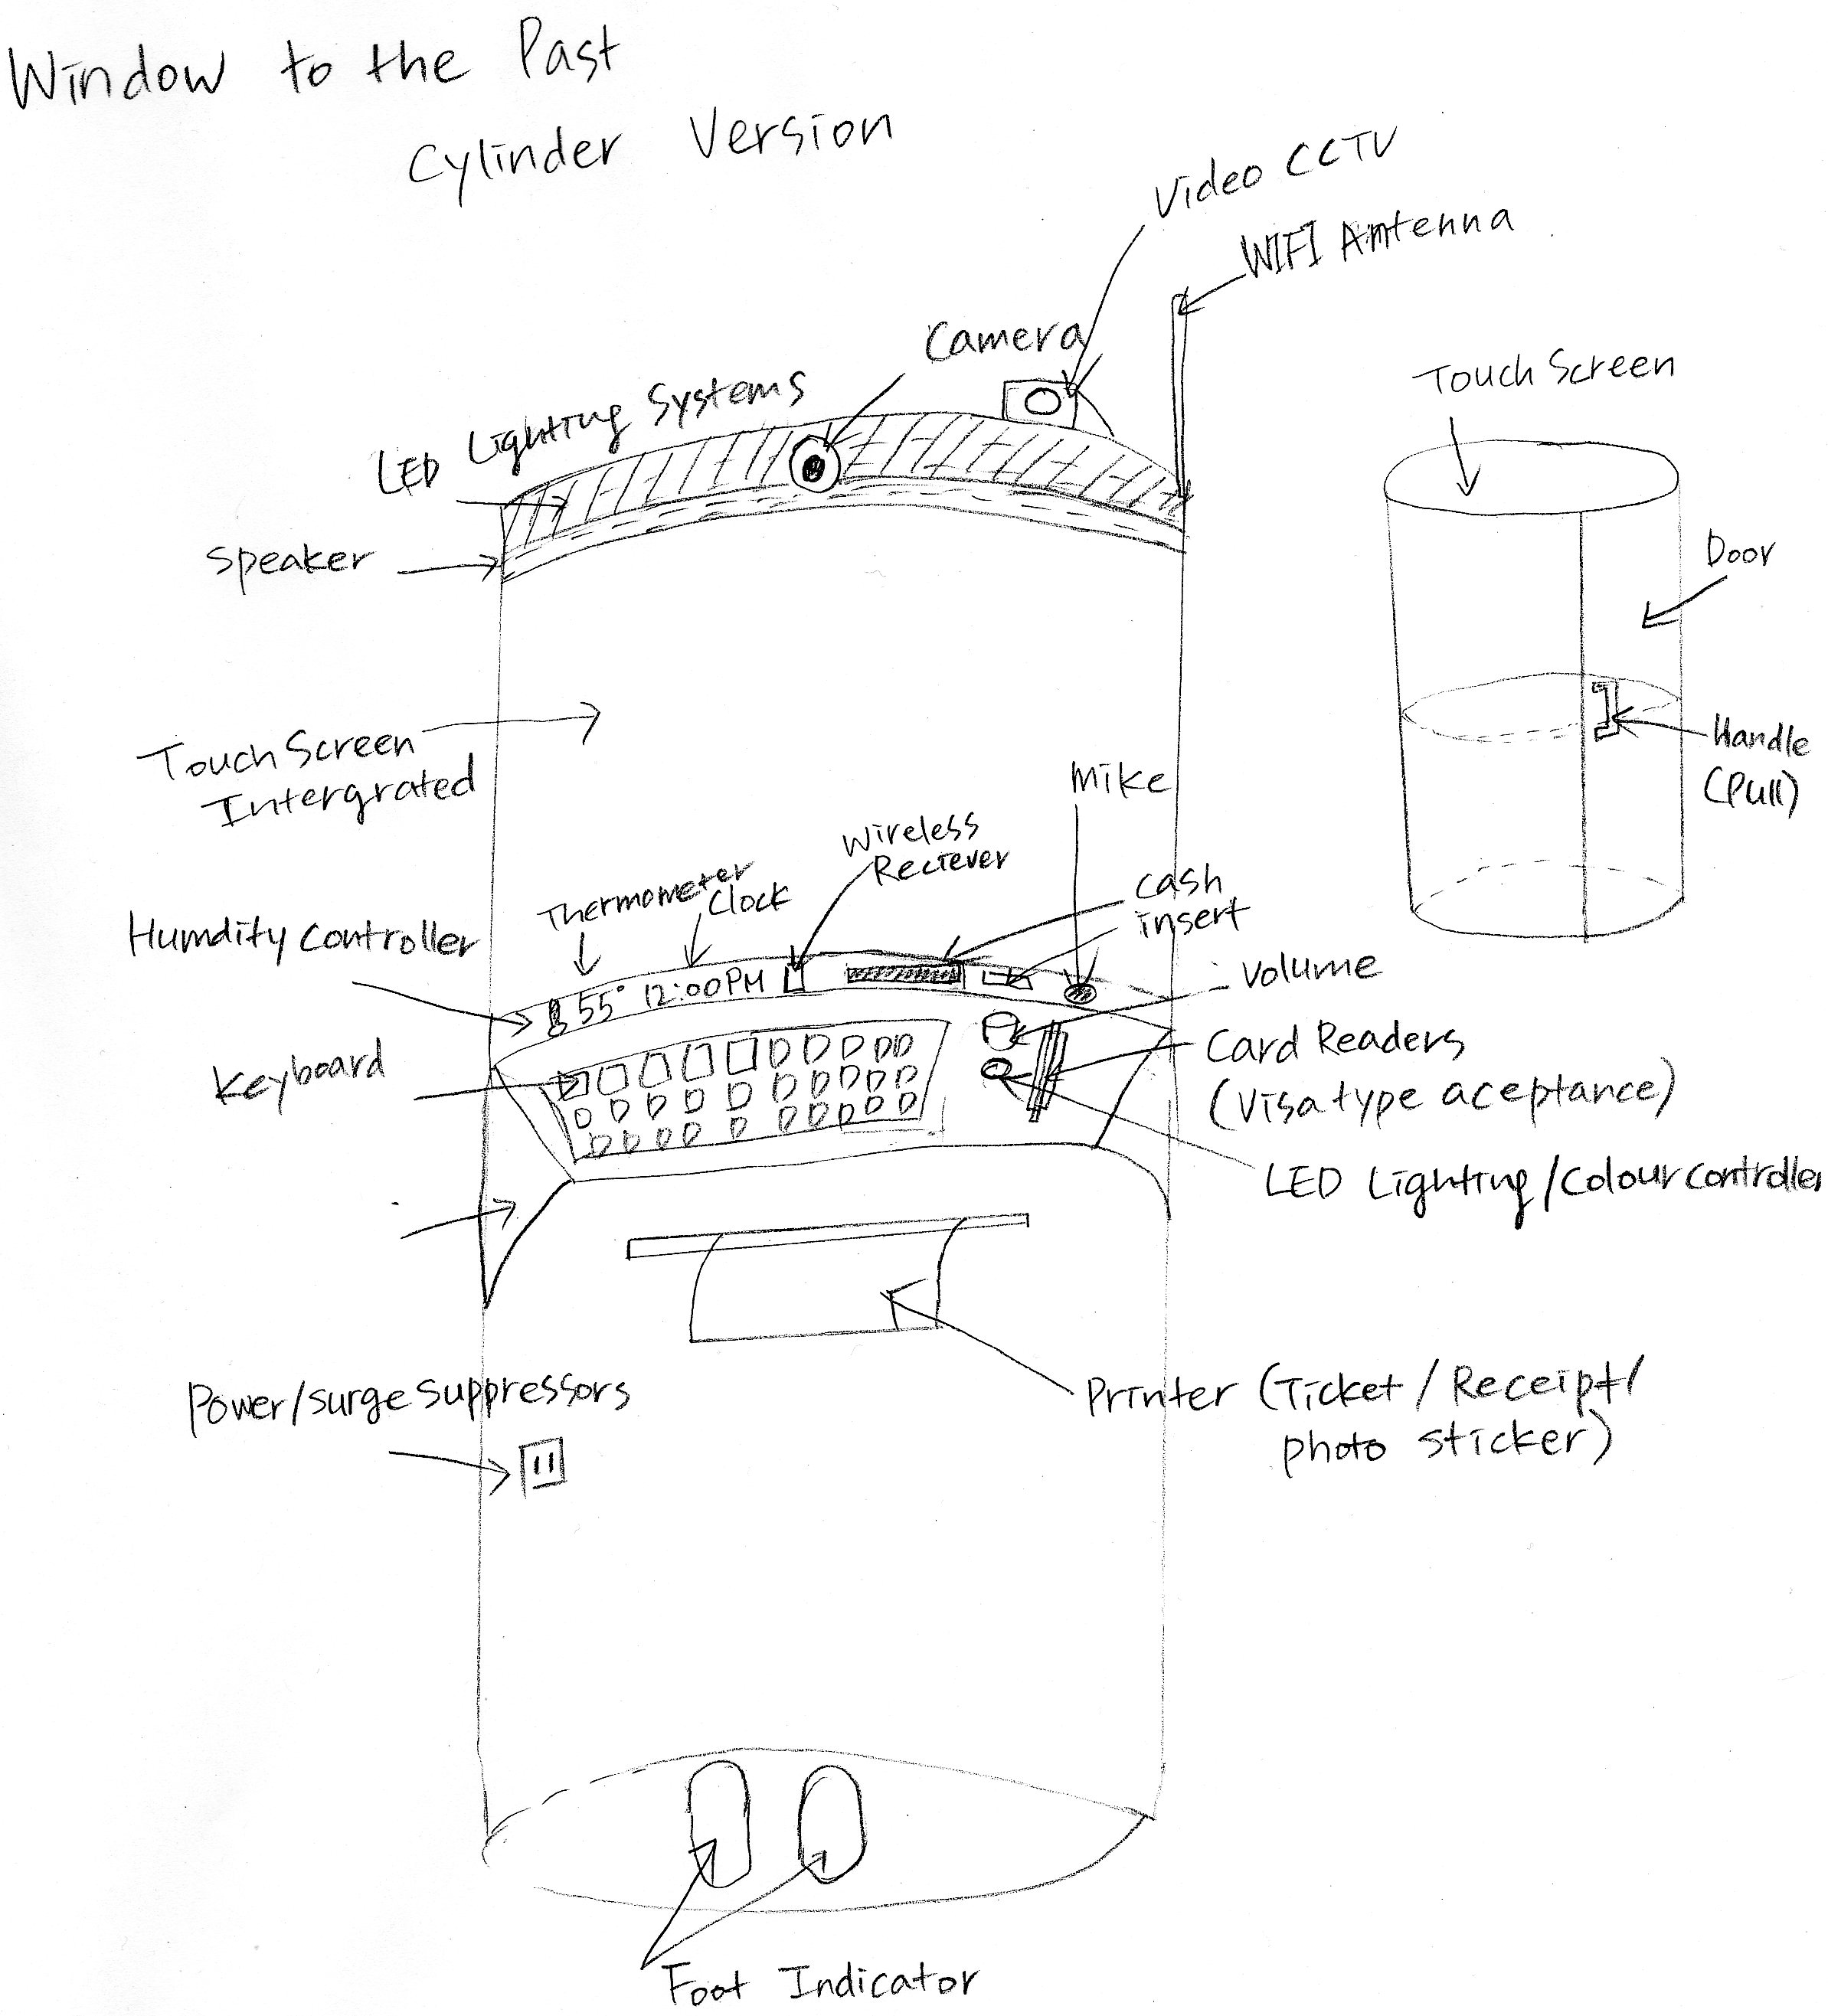 Window to the Past
Cylinder Version
Video CCTV
WIFI Antenna
Camera
LED Lighting Systems
Speaker
Touch Screen
Door
Handle
(Pull)
Touch Screen
Intergrated
Mike
Wireless
Reciever
Thermometer
Clock
Cash
insert
Humdity controller
55° 12:00PM
Volume
Keyboard
Card Readers
(Visa type aceptance)
LED Lighting/Colour controller
Power/surge suppressors
Printer (Ticket / Receipt /
photo sticker)
Foot Indicator